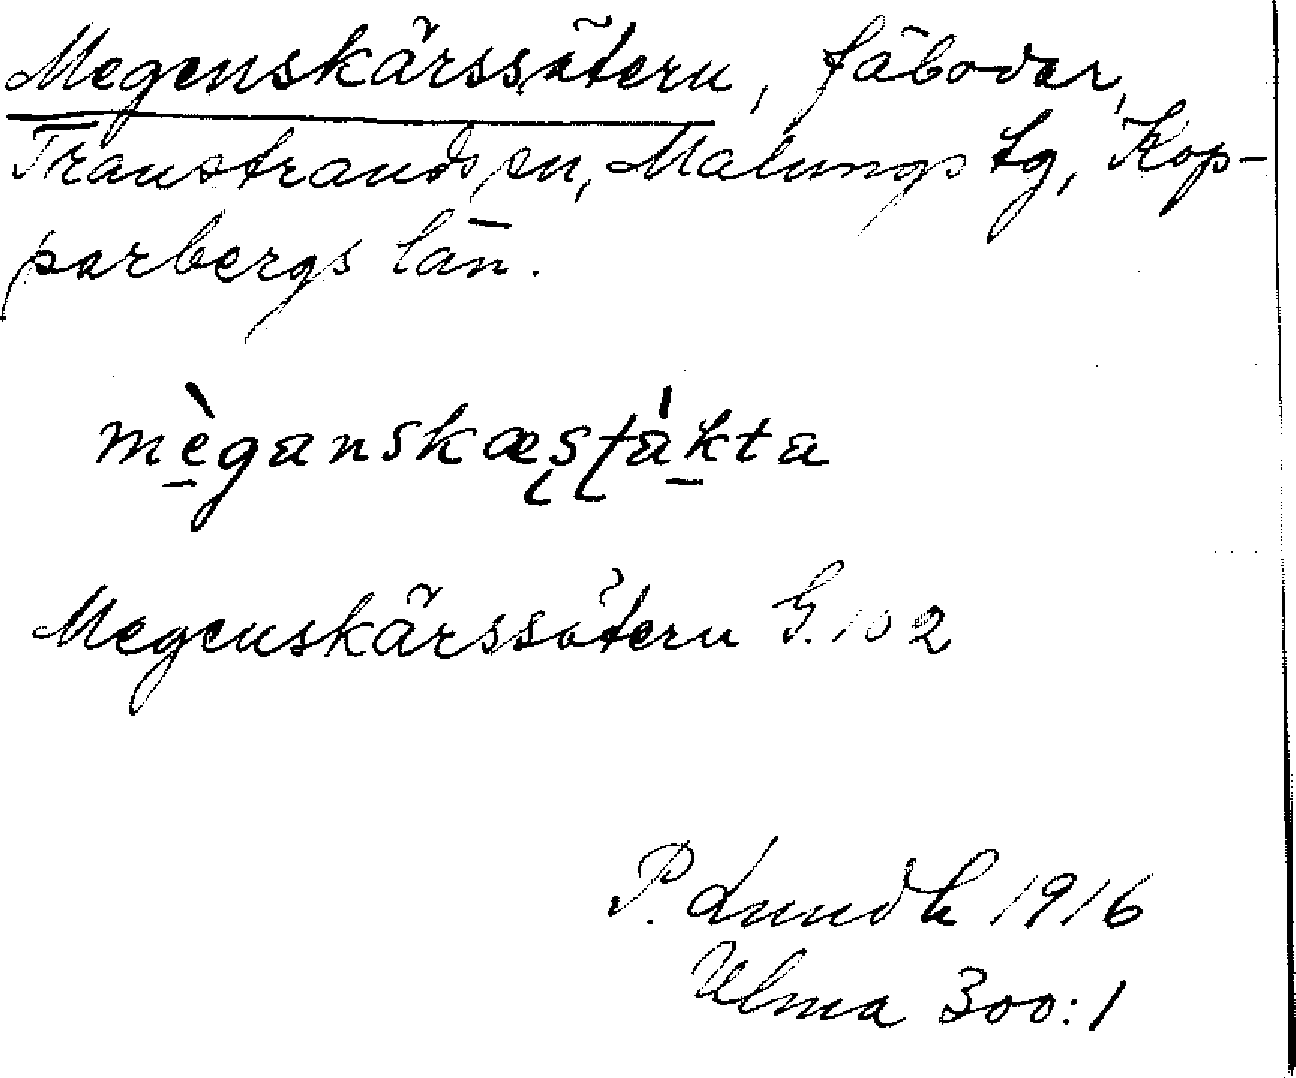 Megenskärssätern, fäbodar,
Transtrands sn, Malungs tg, Kop-
parbergs län.
mèganskæʂʈákta
Megenskärssätern G. 102
P. Lundh 1916
Ulma 300:1